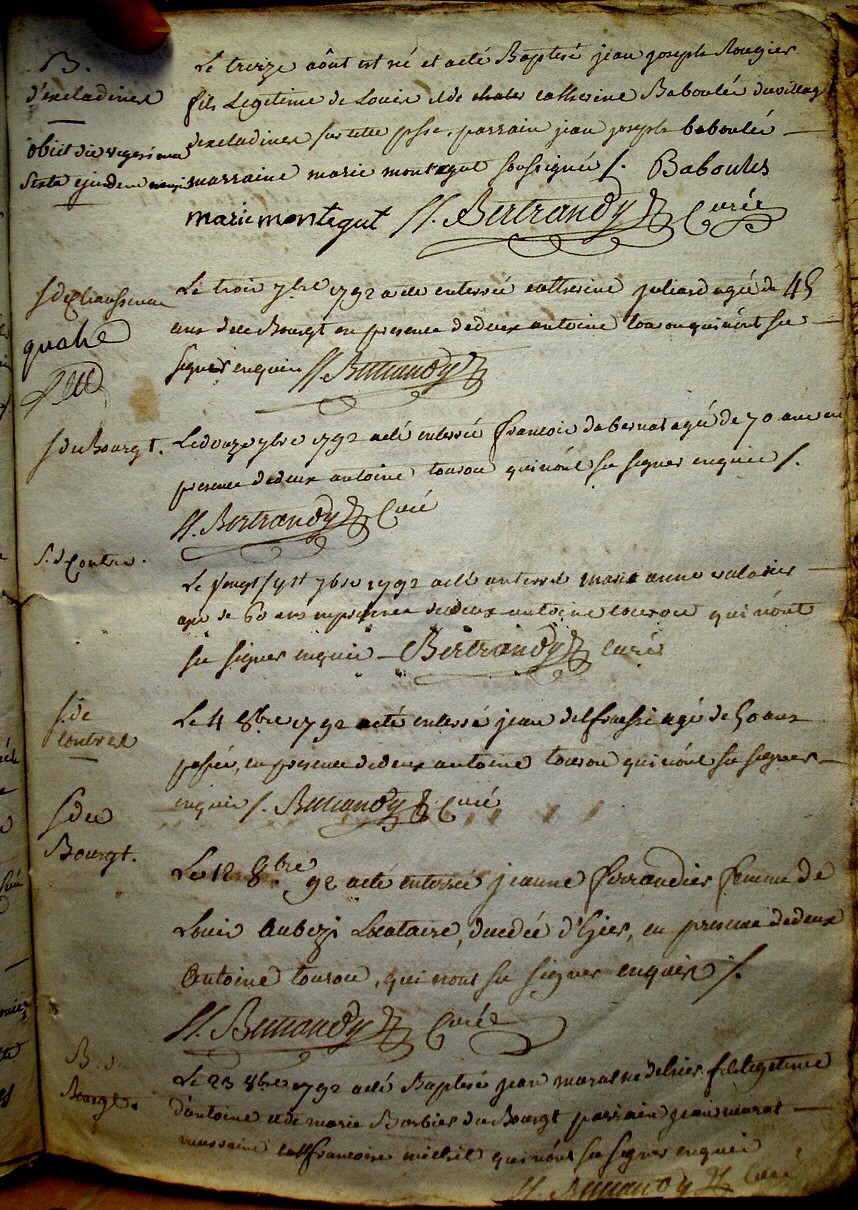 B.
d'excladines
obiit die vigesima
sexta ejusdem mensis
Le treize aôut est né et acté Baptisé jean joseph Rougier
fils Legitime de Louis et de catherine Baboulés du village
dexcladines sur cette psse. parrain jean joseph baboulés
marraine marie montegut soussignés /. Baboules
marie montegut H. Bertrandy Curé
S. de
quatre
Le trois 7bre 1792 a eté enterrée catherine juliard agée de 45
ans de ce Bourgt en presence de deux antoine tourou qui n'ont su
signer enquis H. Bertrandy
S. du Bourgt.
Le douze 7bre 1792 a eté enterré francois dabernat agé de 70 ans en
presence de deux antoine tourou qui n'ont su signer enquis /.
H. Bertrandy Curé
S. de Contres.
Le vingt sept 7bre 1792 a eté enterrée marie anne
agée de 60 ans en presence de deux antoine tourou qui n'ont
su signer enquis Bertrandy curé
S. de
Contres
Le 4 8bre 1792 a eté enterré jean agé de 50 ans
passés, en presence de deux antoine tourou qui n'ont su signer
enquis /. Bertrandy Curé
S. du
Bourgt.
Le 12 8bre 92 a eté enterrée jeanne ferrandies femme de
Louis Aubezi Locataire, decedée d'hier, en presence de deux
Antoine tourou, qui n'ont su signer enquis /.
H. Bertrandy Curé
B. d
Bourgt.
Le 23 8bre 1792 a eté Baptisé jean marat né d'hier fils legitime
d'antoine et de marie Borbies du Bourgt parrain jean marat
marraine francoise michel qui n'ont su signer enquis
H. Bertrandy Curé